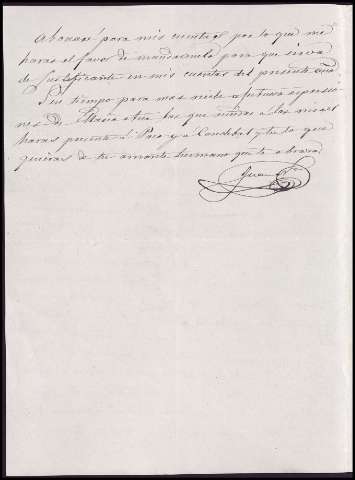 abonar para mis cuentas por lo que me
haras el favor de mandarmelo para que sirva
de justificante en mis cuentas del presente año
Sin tiempo para mas recibe afectuosas espresio
nes de Maria a tia las que unidas a las mias
haras presente á Paco y a Conchita y tu lo que
quieras de tu amante hermano que te abraza
Juan